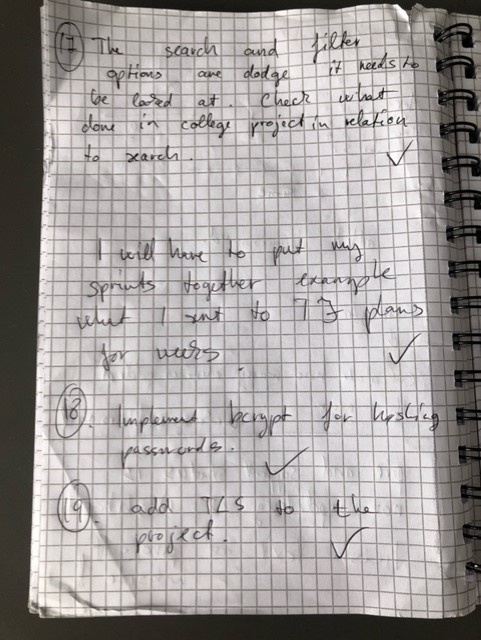 17 The search and filter
options are dodge it needs to
be looked at. Check what
done in college project in relation
to search.
I will have to put my
sprints together example
what I sent to TJ plans
for weeks.
18. Implement bcrypt for hashing
passwords.
19. add TLS to the
project.